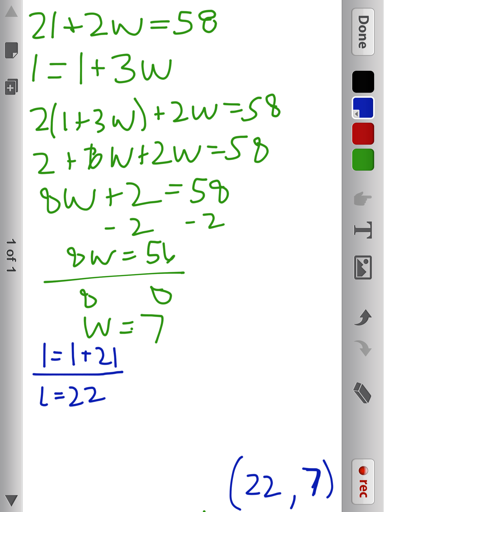 2l+2w=58
l=1+3w
2(1+3w)+2w=58
2+6w+2w=58
8w+2=58
-2 -2
8w=56
8 8
w=7
l=1+21
l=22
(22,7)
Done
T
rec
1 of 1